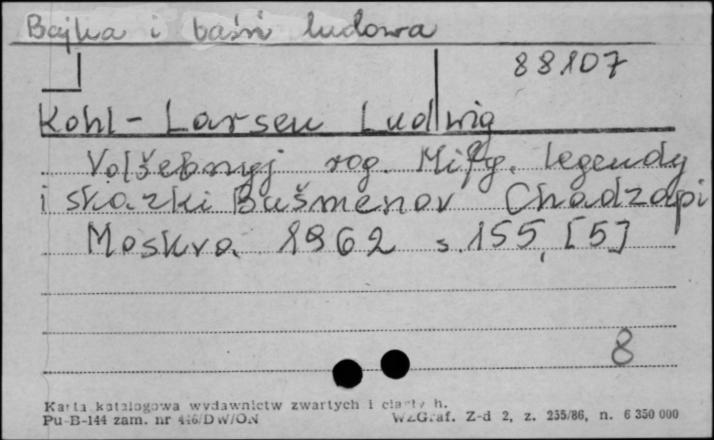 Bajka i baśń ludowa
88107
Kohl-Larsen Ludwig
Volšebnyj rog. Mify. legendy
i skazki Bušmenov Chadzapi
Moskva 1962 s. 155, [5]
8
Karta katalogowa wydawnictw zwartych i h.
Pu-B-144 zam. nr 446/DW/ON WZGraf. Z-d 2, z. 235/86, n. 6 350 000